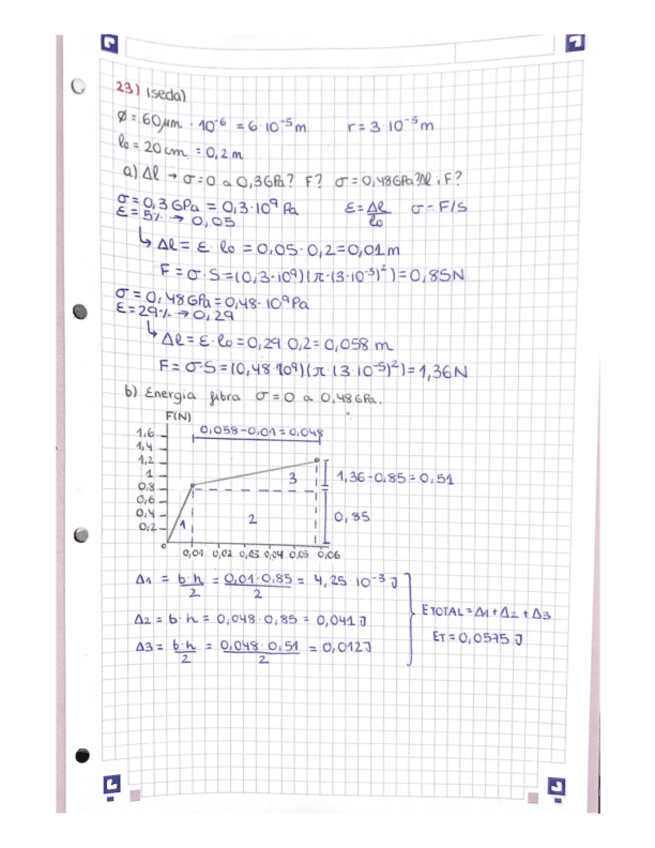 23) (seda)
Ø = 60μm · 10⁻⁶ = 6·10⁻⁵ m r = 3·10⁻⁵ m
l₀ = 20 cm = 0,2 m
a) Δl → σ = 0 a 0,3GPa? F? σ = 0,48GPa? Δl i F?
σ = 0,3 GPa = 0,3·10⁹ Pa ε = Δl/l₀ σ = F/S
ε = 5% → 0,05
↳ Δl = ε · l₀ = 0,05 · 0,2 = 0,01 m
F = σ · S = (0,3·10⁹)(π·(3·10⁻⁵)²) = 0,85N
σ = 0,48GPa = 0,48·10⁹ Pa
ε = 29% → 0,29
↳ Δl = ε · l₀ = 0,29 · 0,2 = 0,058 m
F = σ·S = (0,48·10⁹)(π·(3·10⁻⁵)²) = 1,36N
b) Energia fibra σ = 0 a 0,48GPa.
F(N)
0,058 - 0,01 = 0,048
1,6
1,4
1,2
1
0,8
0,6
0,4
0,2
0
3
1,36 - 0,85 = 0,51
1
2
0,85
0,01 0,02 0,03 0,04 0,05 0,06
Δ1 = b·h/2 = 0,01·0,85/2 = 4,25·10⁻³ J
Δ2 = b·h = 0,048·0,85 = 0,041 J
Δ3 = b·h/2 = 0,048·0,51/2 = 0,012 J
ETOTAL = Δ1 + Δ2 + Δ3
ET = 0,0575 J